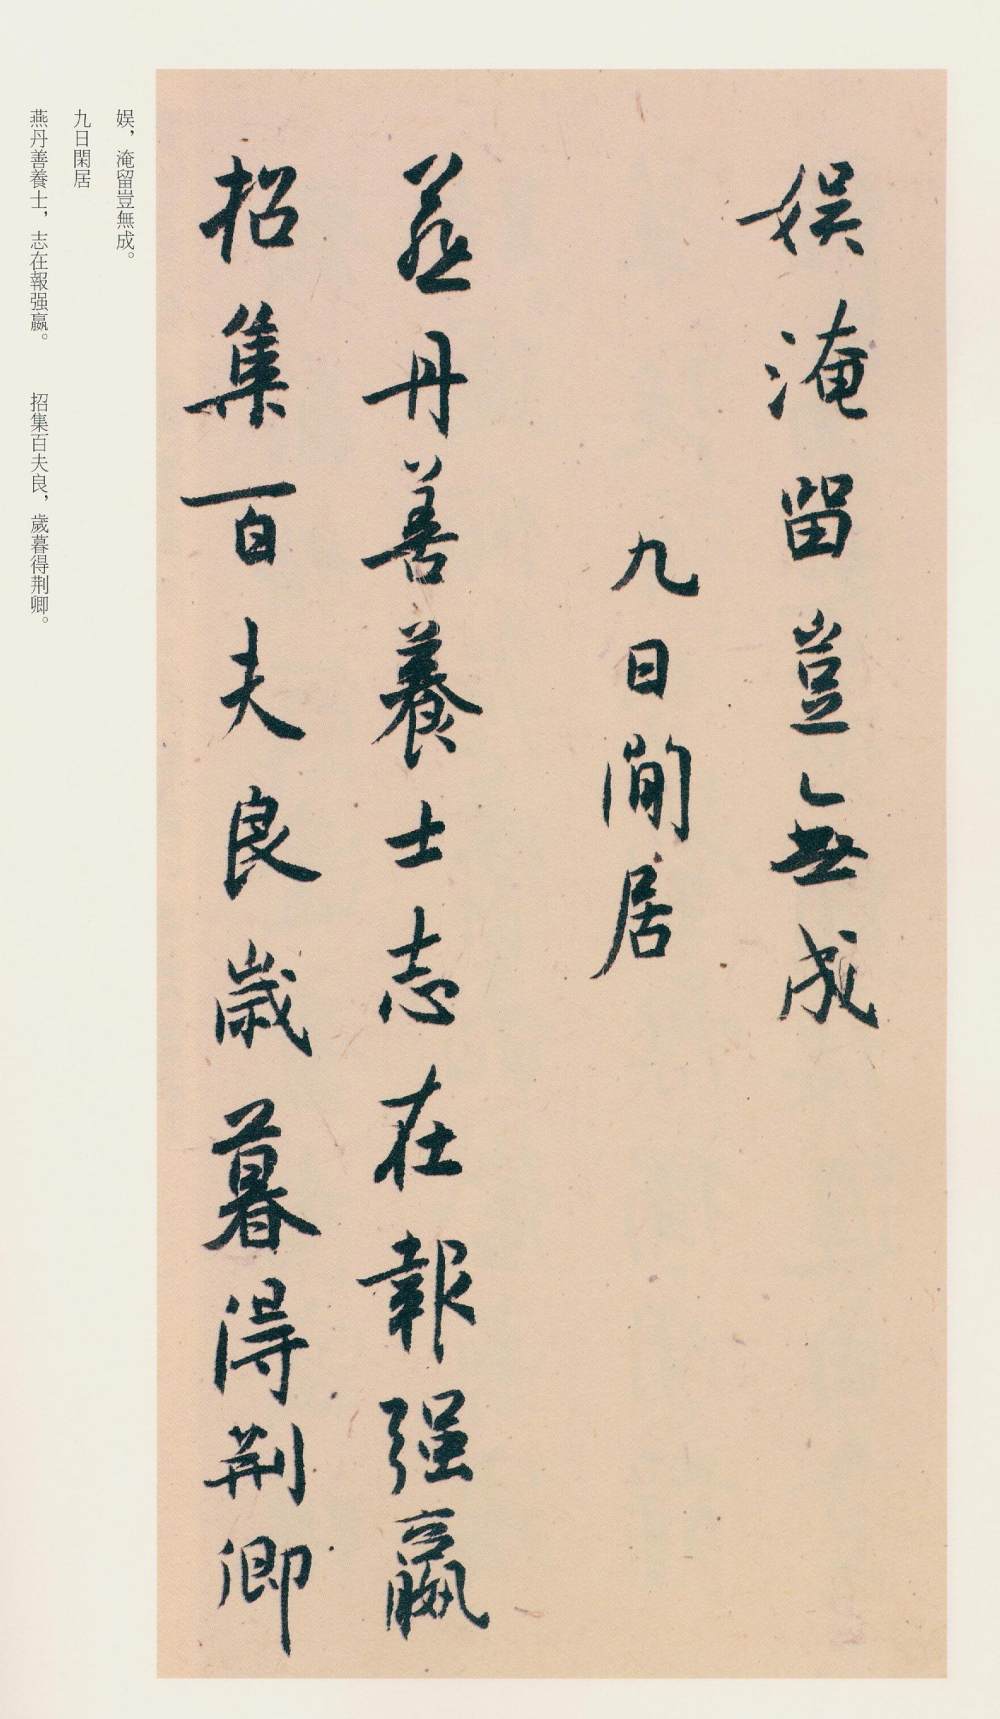 娱淹留豈無成
九日閒居
燕丹善養士志在報强嬴
招集百夫良歲暮得荆卿
娱，淹留豈無成。
九日閑居
燕丹善養士，志在報强嬴。 招集百夫良，歲暮得荆卿。